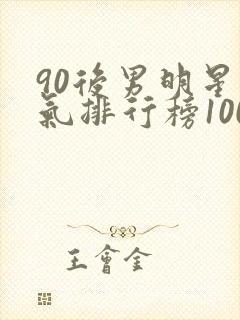 90後男明星
氣排行榜100
王會金